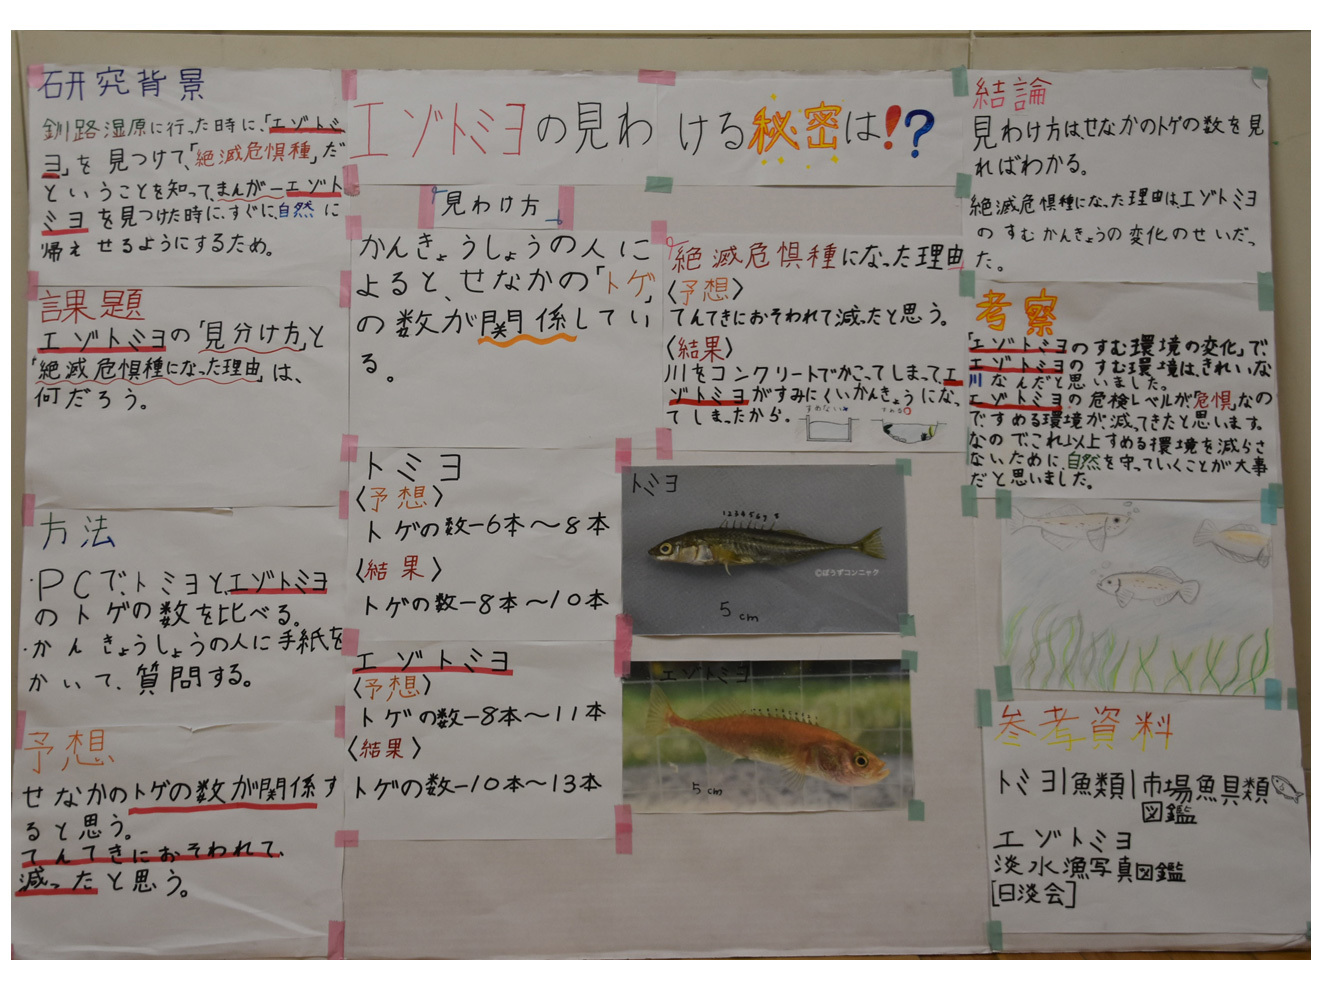 エゾトミヨの見わける秘密は!?
研究背景
釧路湿原に行った時に、「エゾトミ
ヨ」を見つけて、「絶滅危惧種」だ
ということを知って、まんが一エゾト
ミヨを見つけた時に、すぐに、自然に
帰えせるようにするため。
課題
エゾトミヨの「見分け方」と
「絶滅危惧種になった理由」は、
何だろう。
方法
・PCで、トミヨと、エゾトミヨ
のトゲの数を比べる。
・かんきょうしょうの人に手紙を
かいて、質問する。
予想
せなかのトゲの数が関係す
ると思う。
てんてきにおそわれて、
減ったと思う。
「見わけ方」
かんきょうしょうの人に
よると、せなかの「トゲ」
の数が関係してい
る。
トミヨ
〈予想〉
トゲの数−6本〜8本
〈結果〉
トゲの数−8本〜10本
エゾトミヨ
〈予想〉
トゲの数−8本〜11本
〈結果〉
トゲの数−10本〜13本
「絶滅危惧種になった理由
〈予想〉
てんてきにおそわれて減ったと思う。
〈結果〉
川をコンクリートでかこってしまって、エ
ゾトミヨがすみにくいかんきょうにな、
てしまったから。
すめない×
トミヨ
12345678
©ぼうずコンニャク
5cm
エゾトミヨ
5cm
結論
見わけ方は、せなかのトゲの数を見
ればわかる。
絶滅危惧種になった理由は、エゾトミヨ
のすむかんきょうの変化のせいだっ
た。
考察
「エゾトミヨのすむ環境の変化」で、
エゾトミヨのすむ環境は、きれいな
川なんだと思いました。
エゾトミヨの危検レベルが「危惧」なの
で、すめる環境が、減ってきたと思います。
なのでこれ以上すめる環境を減らさ
ないために、自然を守っていくことが大事
だと思いました。
参考資料
トミヨ|魚類|市場魚貝類
図鑑
エゾトミヨ
淡水漁写真図鑑
[日淡会]